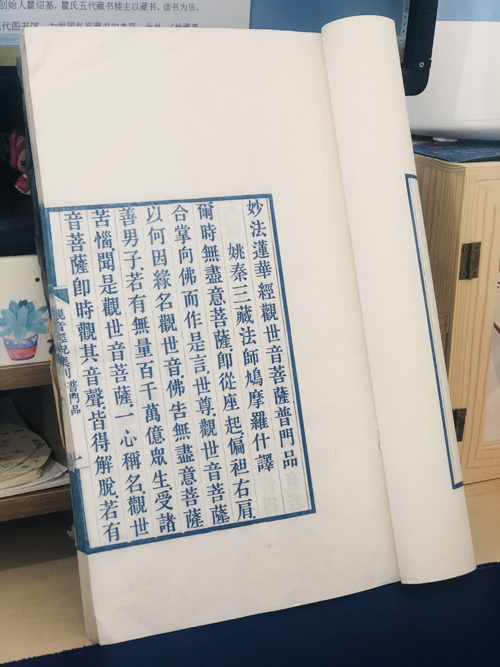 创始人瞿绍基,瞿氏五代藏书楼主以藏书、读书为乐,
妙法蓮華經觀世音菩薩普門品
姚秦三藏法師鳩摩羅什譯
爾時無盡意菩薩.即從座起.偏袒右肩.
合掌向佛而作是言.世尊.觀世音菩薩.
以何因緣名觀世音.佛告無盡意菩薩.
善男子.若有無量百千萬億眾生.受諸
苦惱.聞是觀世音菩薩.一心稱名.觀世
音菩薩.即時觀其音聲.皆得解脫.若有
普門品
一